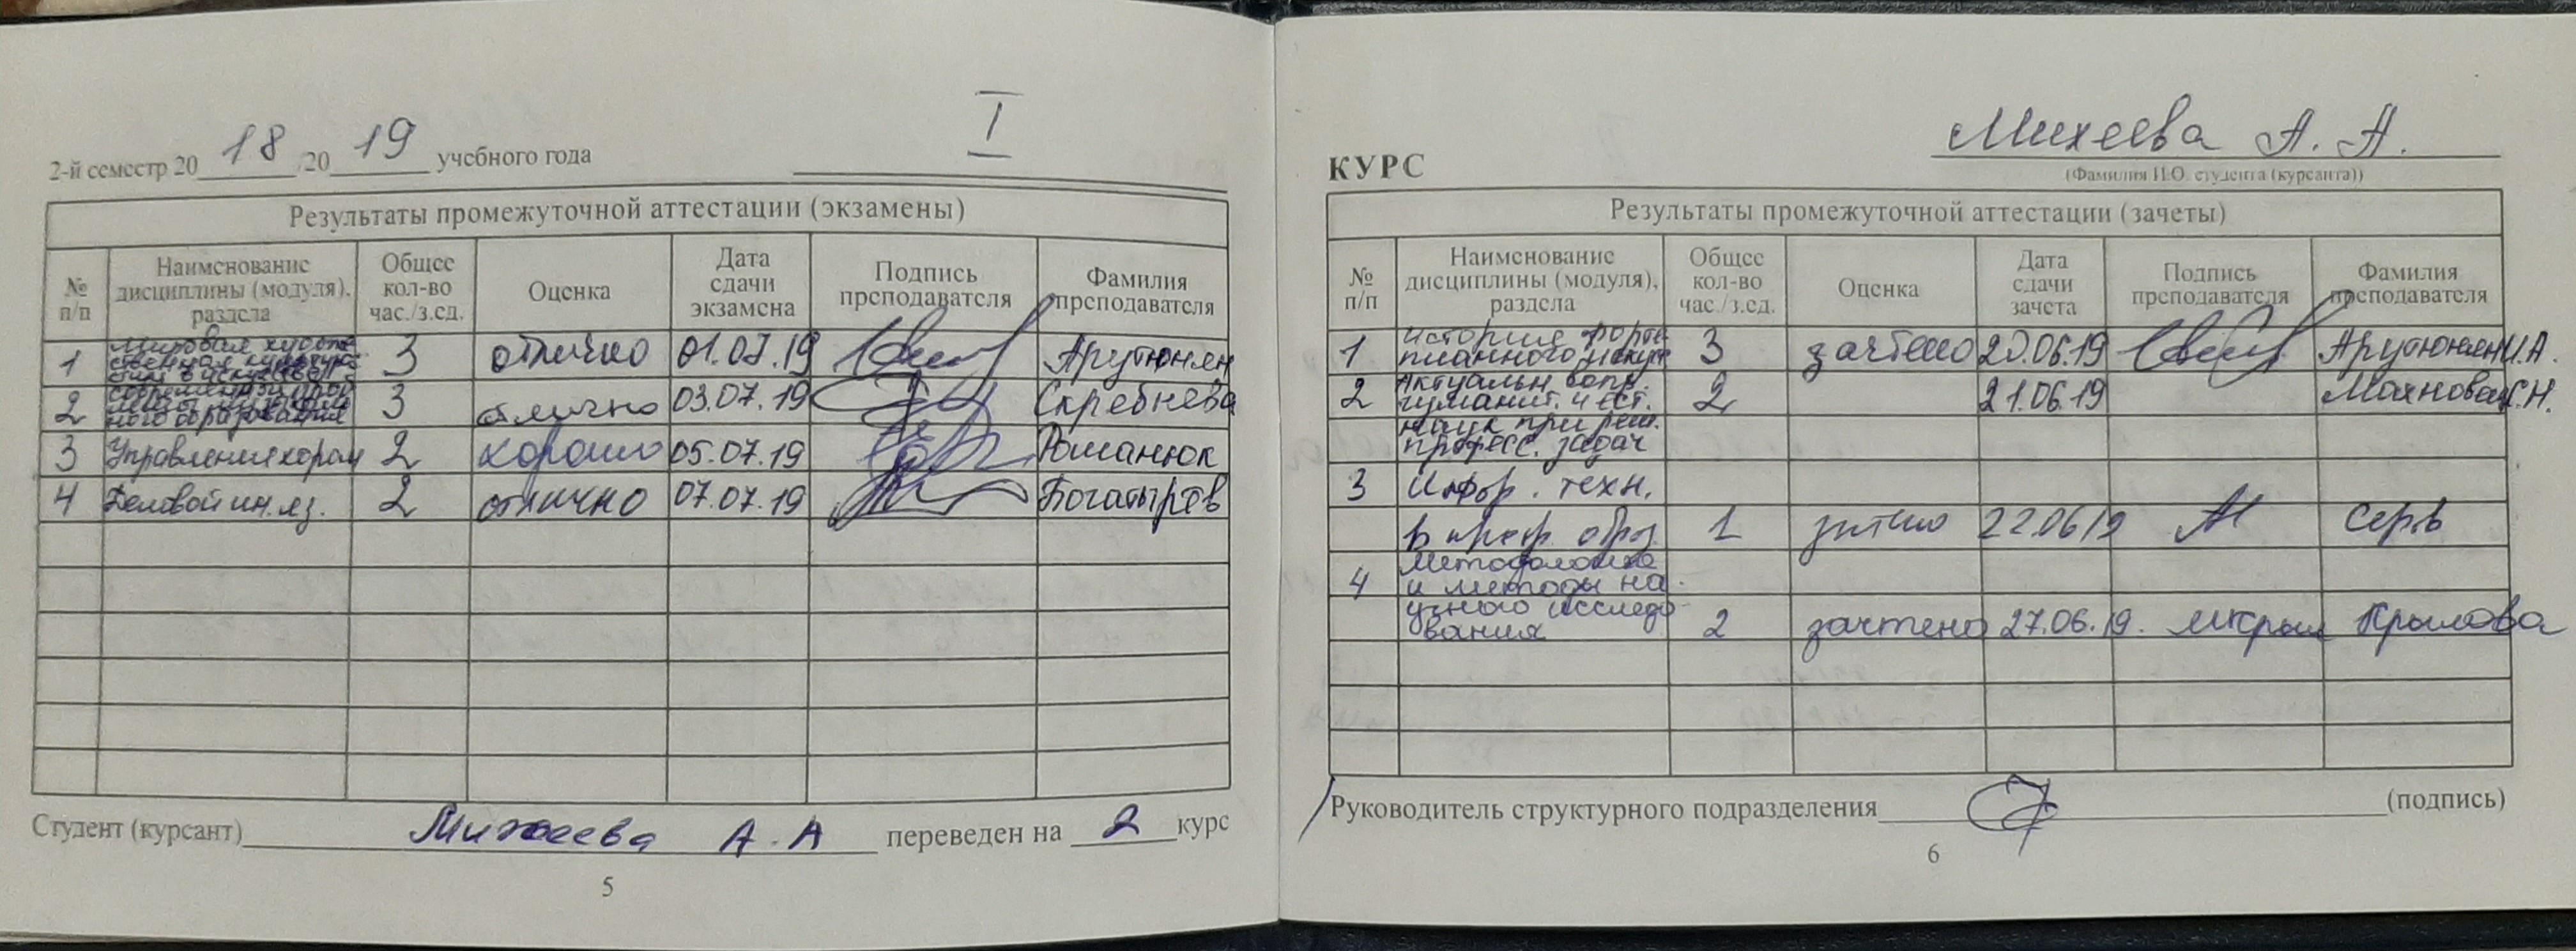 2-й семестр 20 18 /20 19 учебного года I
Результаты промежуточной аттестации (экзамены)
№ п/п Наименование дисциплины (модуля), раздела Общее кол-во час./з.ед. Оценка Дата сдачи экзамена Подпись преподавателя Фамилия преподавателя
1 Мировая художе
ственная культура
3 отлично 01.07.19 Арутюнян
2 современ
ного образования
3 отлично 03.07.19 Скребнева
3 Управление хором 2 хорошо 05.07.19 Романюк
4 Деловой ин. яз. 2 отлично 07.07.19 Богатырёв
Студент (курсант) Михеева А. А переведен на 2 курс
5
Михеева А. А.
КУРС
(Фамилия И.О. студента (курсанта))
Результаты промежуточной аттестации (зачеты)
№ п/п Наименование дисциплины (модуля), раздела Общее кол-во час./з.ед. Оценка Дата сдачи зачета Подпись преподавателя Фамилия преподавателя
История форте
1 пианного искус 3 зачтено 20.06.19 Арутюнян И.А.
Актуальн. вопр.
2 гуманит. и ест. 2 21.06.19 Махновец С.Н.
наук при реш.
професс. задач
3 Инфор. техн.
в проф. обр. 1 22.06.19
Методология
4 и методы на-
учного исследо-
вания 2 зачтено 27.06.19. Крылова
Руководитель структурного подразделения (подпись)
6